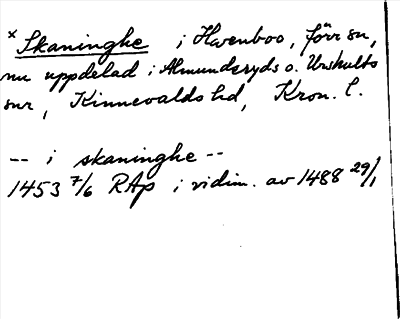 x Skaninghe i Hvenboo, förr sn,
nu uppdelad i Almundsryds o. Urshults
snr, Kinnevalds hd, Kron. l.
-- i skaninghe --
1453 7/6 RAp i vidim. av 1488 29/1